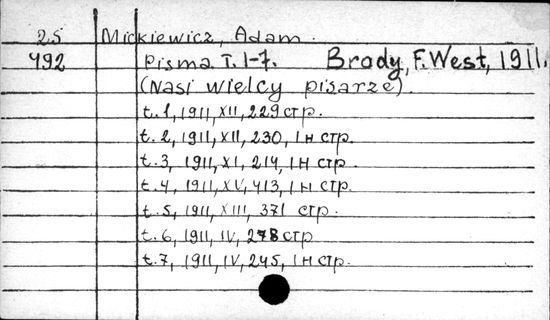 25 Mickiewicz, Adam.
492 Pisma T. 1-7. Brody, F. West, 1911.
(Nasi wielcy pisarze).
t. 1, 1911, XII, 229 стр.
t. 2, 1911, XII, 230, 1 н стр.
t. 3, 1911, XI, 214, 1 н стр.
t. 4, 1911, XV, 413, 1 н стр.
t. 5, 1911, XIII, 371 стр.
t. 6, 1911, IV, 278 стр
t. 7, 1911, IV, 245, 1 н стр.